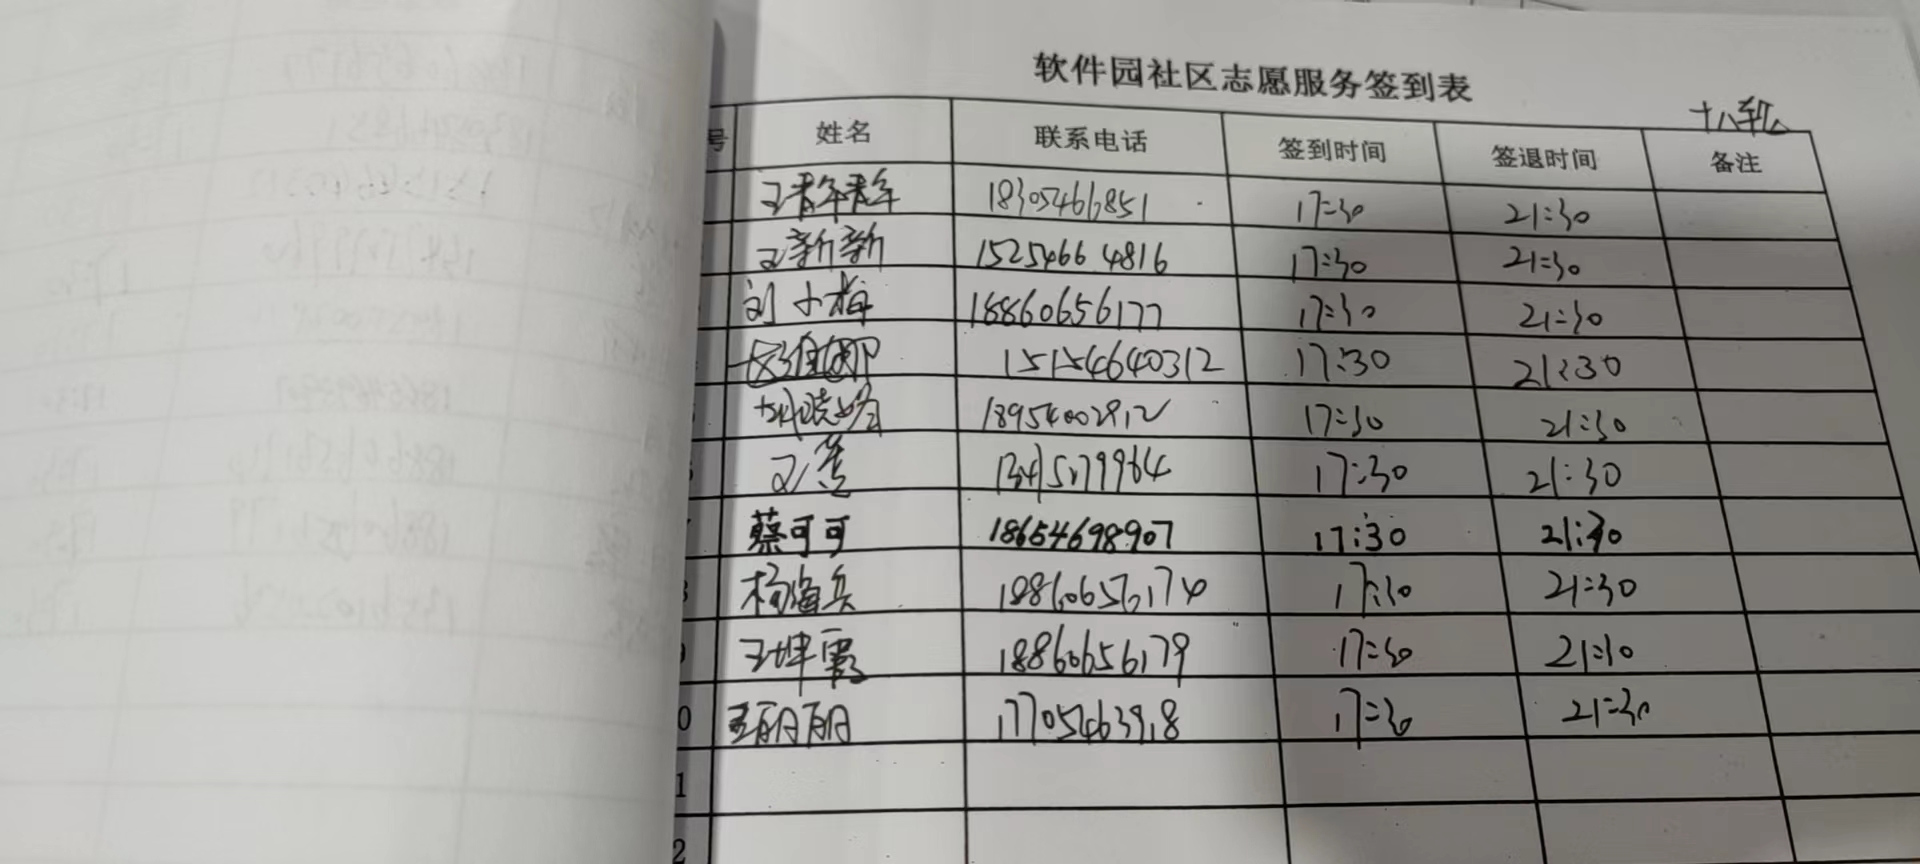 软件园社区志愿服务签到表
号 姓名 联系电话 签到时间 签退时间 备注
18305466851 17:30 21:30
王新新 15254664816 17:30 21:30
刘小梅 18860656177 17:30 21:30
15154640312 17:30 21:30
18954002912 17:30 21:30
17:30 21:30
7 蔡可可 18654698907 17:30 21:30
8 杨海兵 18860656174 17:30 21:30
9 王坤霞 18860656179 17:30 21:30
0 王丽丽 17705463918 17:30 21:30
1
2